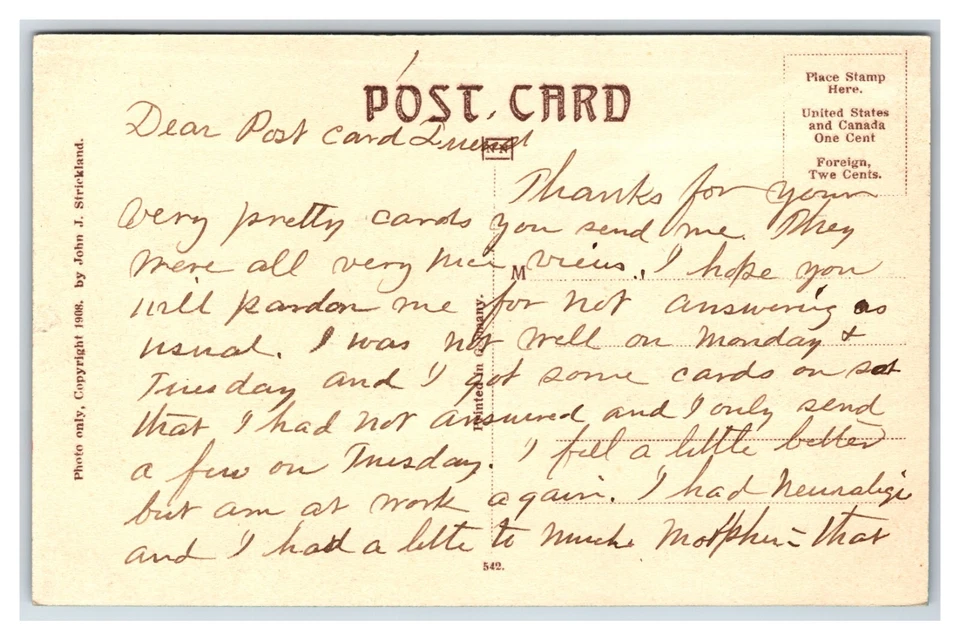 POST CARD
Place Stamp
Here.
United States
and Canada
One Cent
Foreign,
Two Cents.
Photo only, Copyright 1908. by John J. Strickland.
Printed in Germany.
M
Dear Post Card Friend
Thanks for your
very pretty cards you send me. They
were all very nice views., I hope you
will pardon me for not answering as
usual. I was not well on Monday &
Tuesday and I got some cards on sat
that I had not answered and I only send
a few on Tuesday. I feel a little better
but am at work again. I had Neuraligi
and I had a litte to much Morphin- that
542.